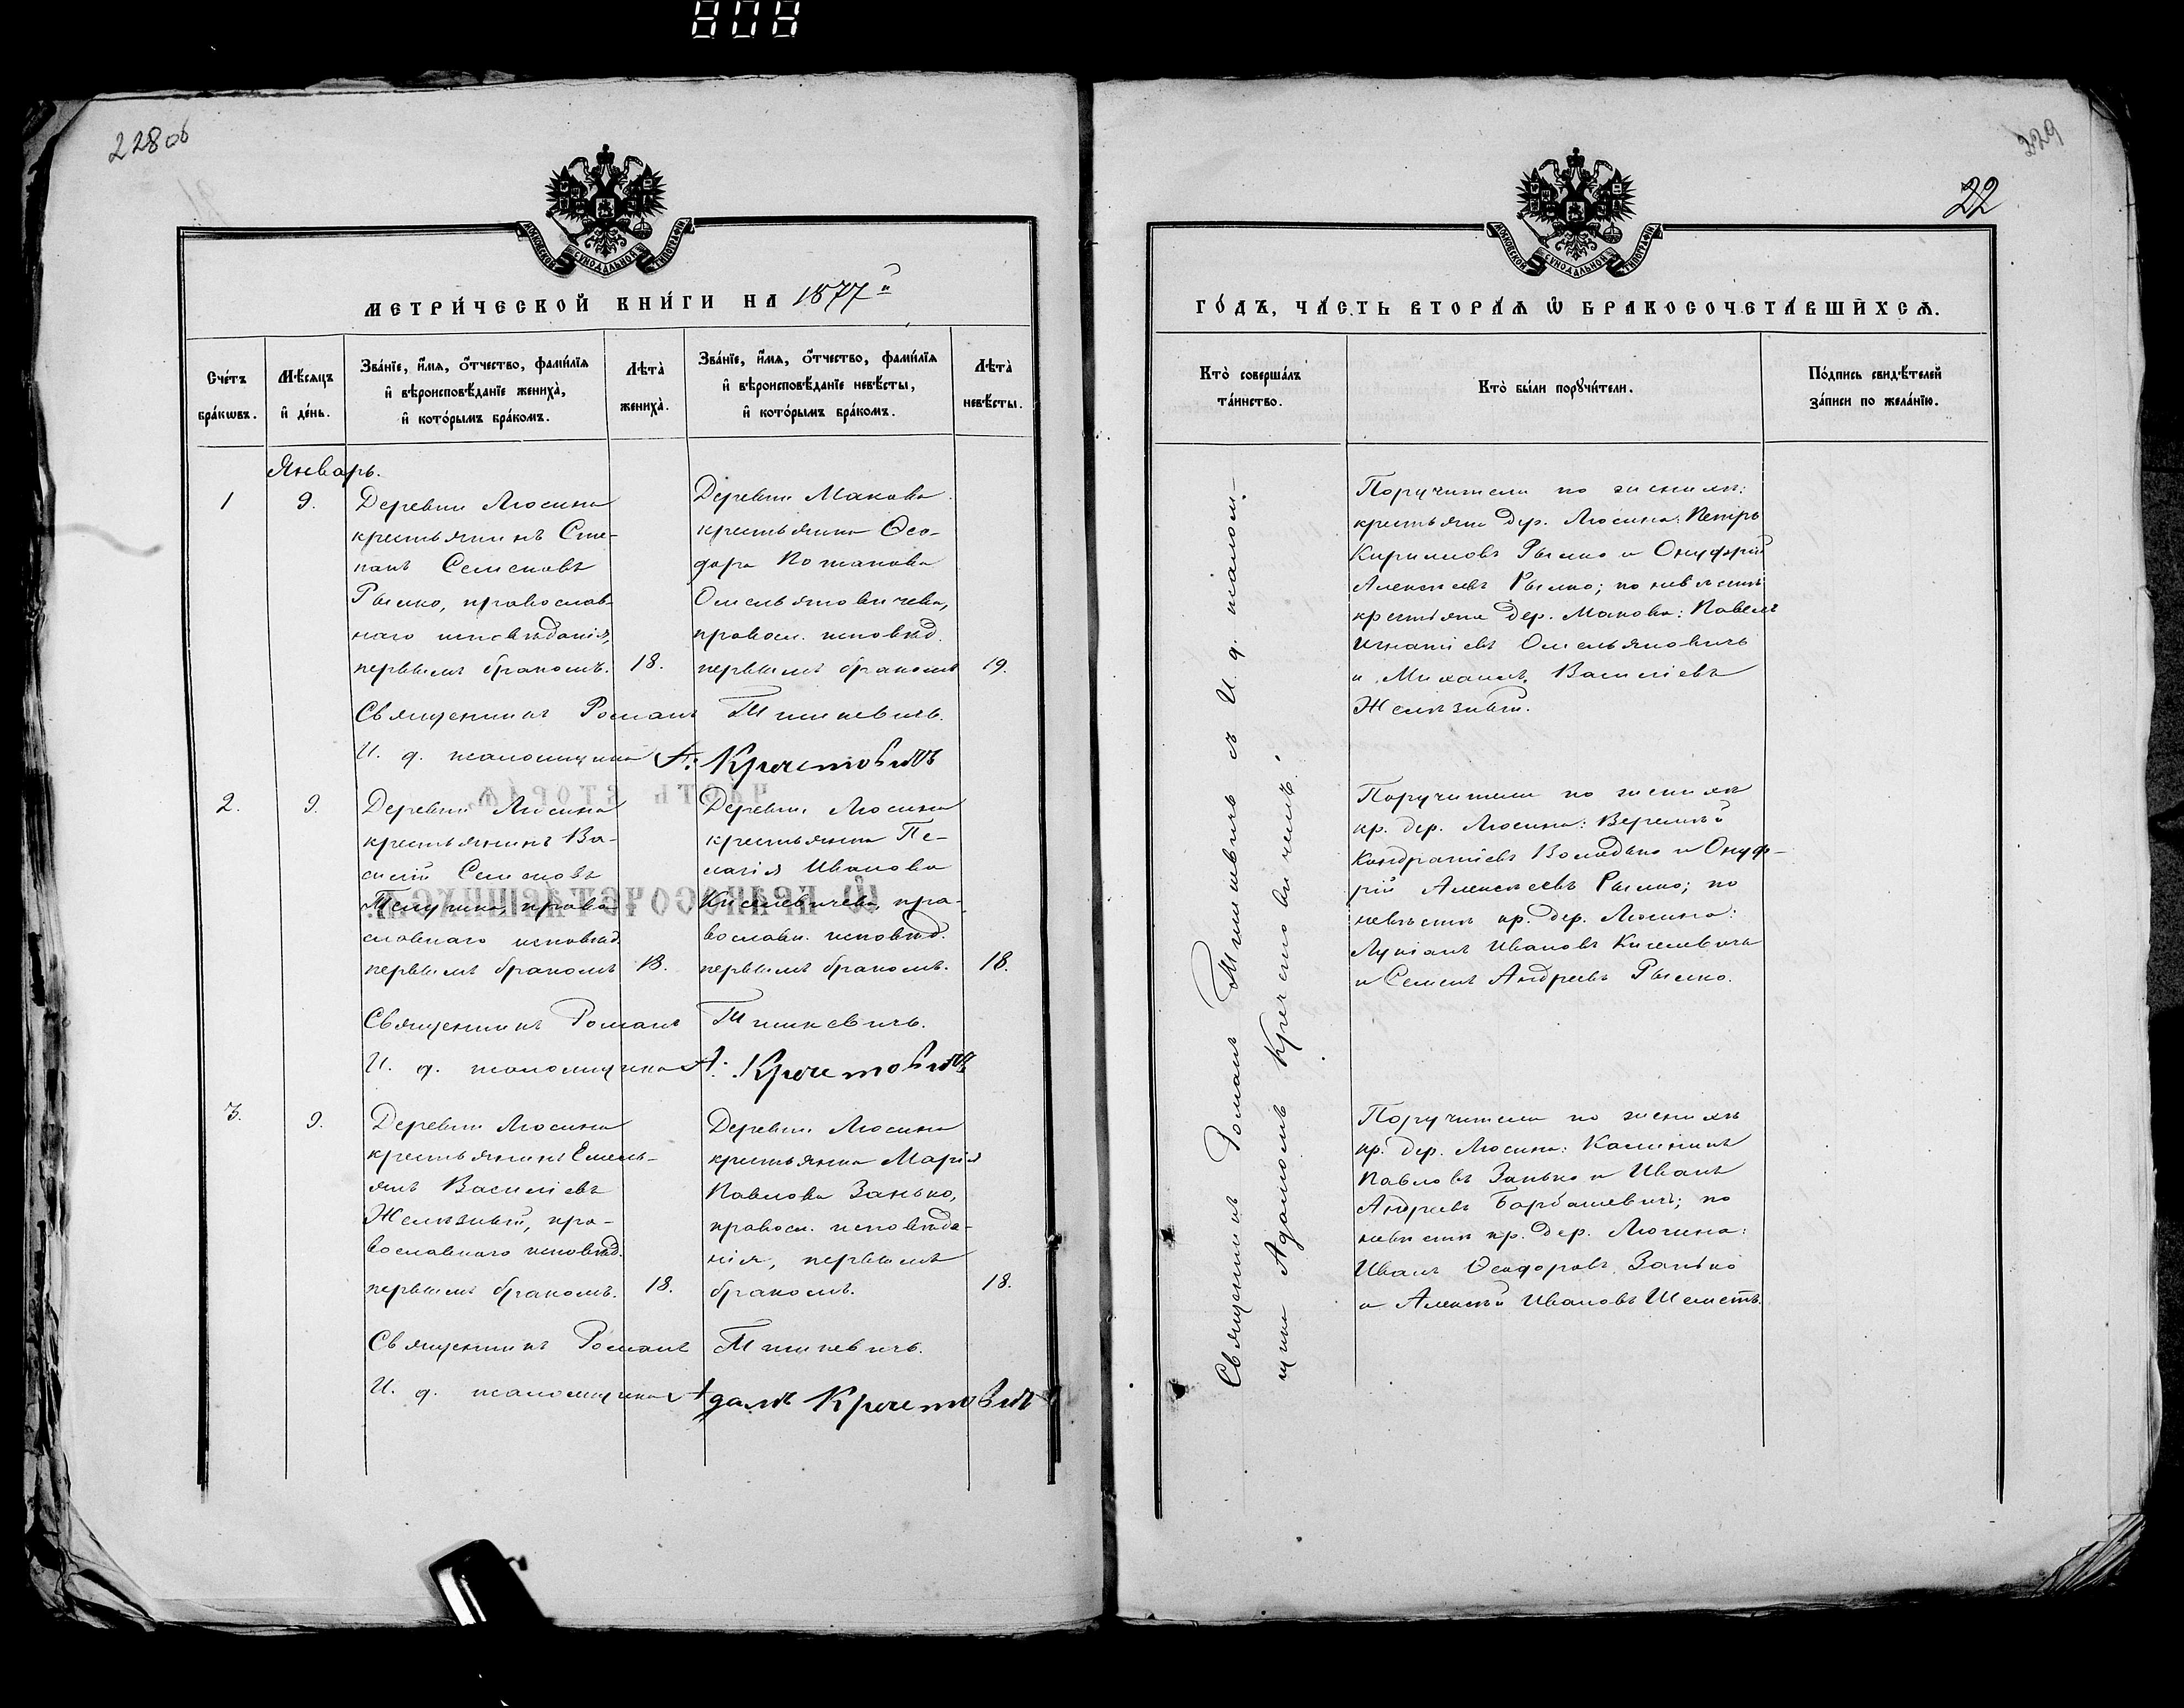 808
228 об
МОСКОВСКОЙ СΥНОДАЛЬНОЙ ТИПОГРАФІИ
МЕТРИ́ЧЕСКОЙ КНИ́ГИ НА 1877й
Сче́тъ бра́кѡвъ.
Мѣ́сяцъ и҆ де́нь.
Зва́нїе, и҆́мя, ѻ҆́тчество, фами́лїя
и҆ вѣроисповѣ́данїе жениха̀,
и҆ кото́рымъ бра́комъ.
Лѣта̀ жениха̀.
Зва́нїе, и҆́мя, ѻ҆́тчество, фами́лїя
и҆ вѣроисповѣ́данїе невѣ́сты,
и҆ кото́рымъ бра́комъ.
Лѣта̀ невѣ́сты.
Январь.
1
9.
Деревни Люсина
крестьянинъ Сте-
панъ Семеновъ
Рымко, православ-
наго исповѣданія,
первымъ бракомъ.
18.
Деревни Макова
крестьянка Ѳео-
дора Потапова
Омельяновичева,
правосл. исповѣд.
первымъ бракомъ
19.
Священникъ Романъ Тишкевичъ.
И. д. псаломщика А. Кречетовичъ
2.
9.
Деревни Люсина
крестьянинъ Ва-
силій Семеновъ
право
славнаго исповѣд.
первымъ бракомъ
18.
Деревни Люсина
крестьянка Пе-
лагія Иванова
Киселевичева, пра-
вославн. исповѣд.
первымъ бракомъ.
18.
Священникъ Романъ Тишкевичъ.
И. д. псаломщика А. Кречетовичъ
3.
9.
Деревни Люсина
крестьянинъ Емель-
янъ Васильевъ
Желѣзный, пра-
вославнаго исповѣд.
первымъ бракомъ.
18.
Деревни Люсина
крестьянка Марія
Павлова Занько,
правосл. исповѣда-
нія, первымъ
бракомъ.
18.
Священникъ Романъ Тишкевичъ.
И. д. псаломщика Адамъ Кречетовичъ
ЧАСТЬ ВТОРАЯ,
Ѡ БРАКОСОЧЕТАВШИХСЯ.
229
22
МОСКОВСКОЙ СΥНОДАЛЬНОЙ ТИПОГРАФІИ
ГО́ДЪ, ЧА́СТЬ ВТОРА́Ѧ Ѡ҆ БРАКОСОЧЕТА́ВШИХСѦ.
Кто̀ соверша́лъ
та́инство.
Кто̀ бы́ли порꙋчи́тели.
По́дпись свидѣ́телей
за́писи по жела́нїю.
Священникъ Романъ Тишкевичъ съ И. д. псалом-
щика Адамомъ Кречетовичемъ.
Поручители по женихѣ:
крестьяне дер. Люсина: Петръ
Кирилловъ Рымко и Онуфрій
Алексѣевъ Рымко; по невѣстѣ
крестьяне дер. Макова: Павелъ
Игнатіевъ Омельяновичъ
и Михаилъ Василіевъ
Желѣзный.
Поручители по женихѣ
кр. дер. Люсина: Веремѣй
Кондратіевъ Володько и Онуф-
рій Алексѣевъ Рымко; по
невѣстѣ кр. дер. Люсина:
Лукіанъ Ивановъ Киселевичъ
и Семенъ Андреевъ Рымко.
Поручители по женихѣ
кр. дер. Люсина: Калиникъ
Павловъ Занько и Иванъ
Андреевъ Барбашевичъ; по
невѣстѣ кр. дер. Люсина:
Иванъ Ѳеодоровъ Занько
и Алексѣй Ивановъ Шеметъ.